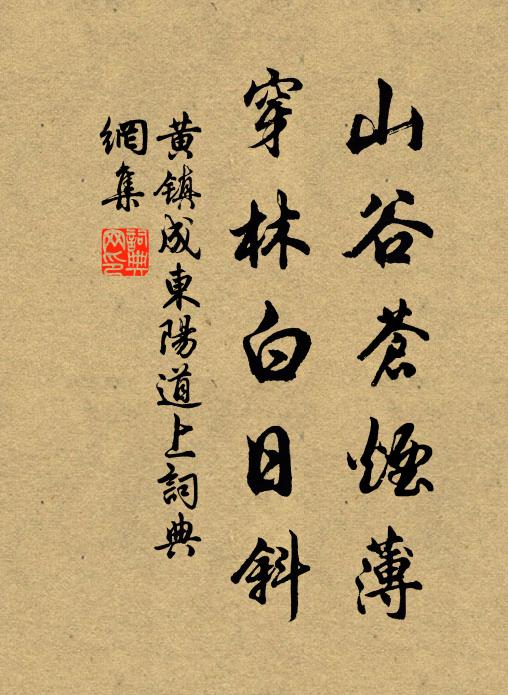 山谷蒼煙薄
穿林白日斜
黃鎮成東陽道上詞典
網集
詞典網印